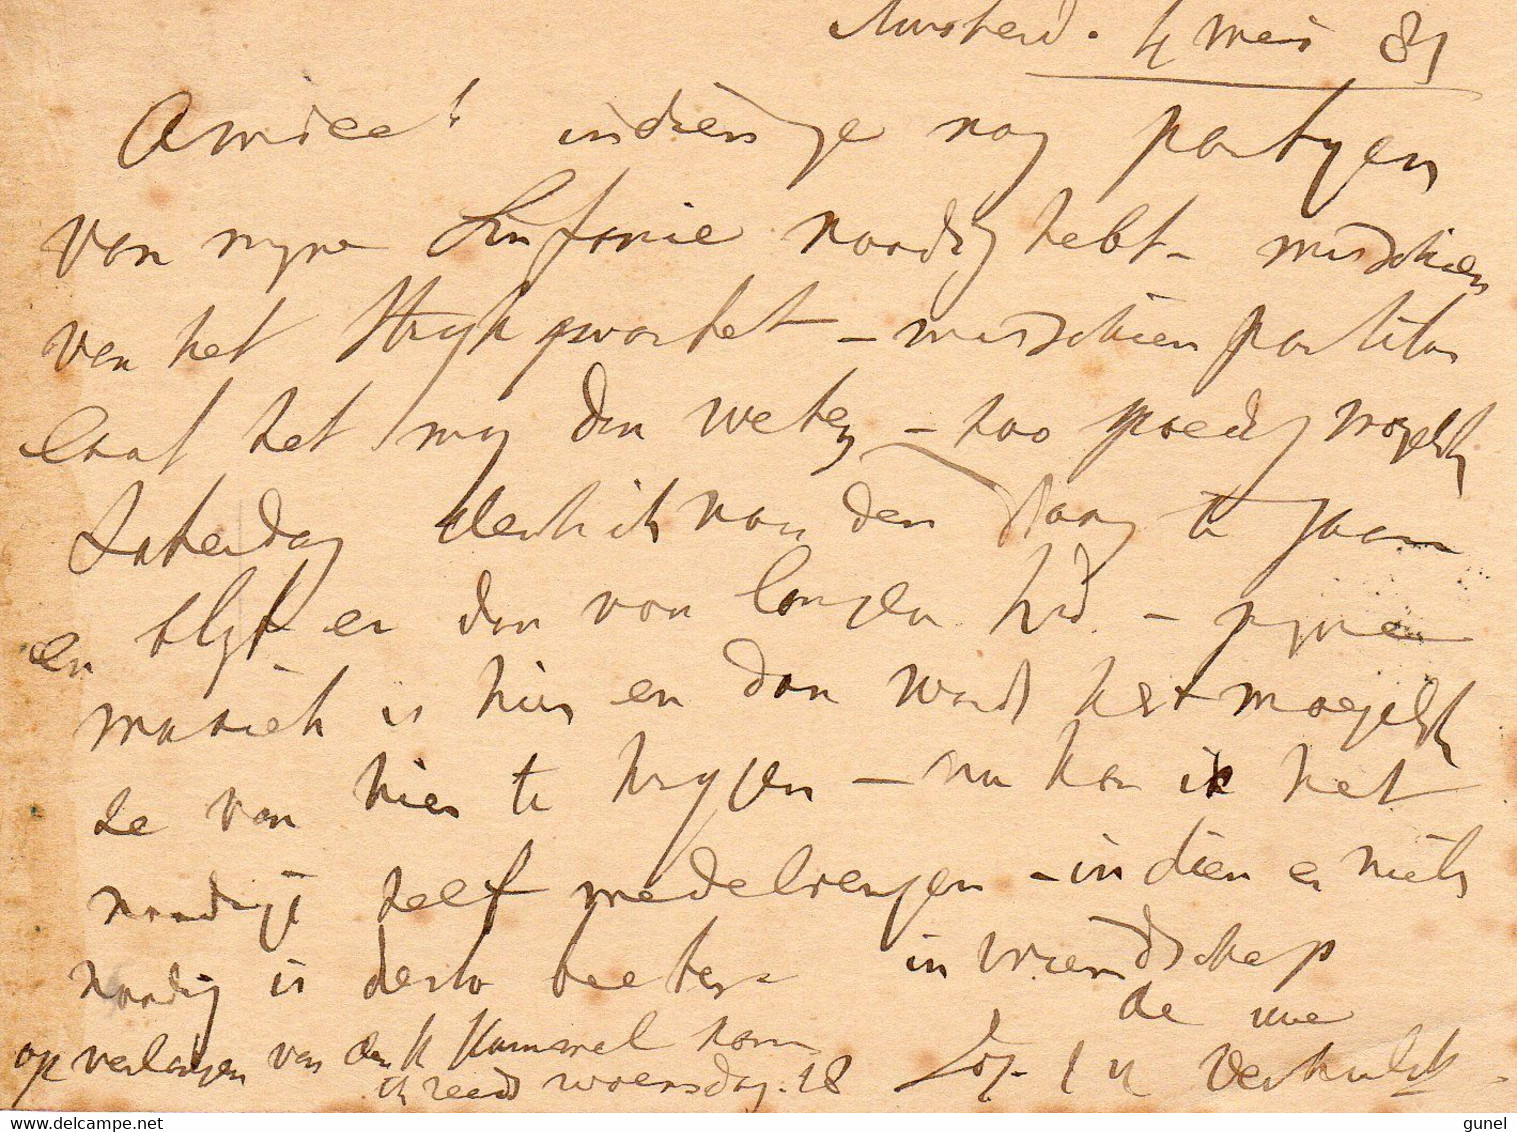 Amsterd. 4 mei 81
Amice! indien ge nog partyen
van myne Sinfonie noodig hebt - misschien
van het Strykquartet - misschien partituur
laat het my dan weten - zoo spoedig mogelyk
Zaterdag denk ik naar den Haag te gaan
en blyf er dan van langen tyd - myne
muziek is hier en dan word het moeyelyk
ze van hier te krygen - nu kan ik het
noodige zelf medebrengen - indien er niets
noodig is des te beter - in vriendschap
de uwe
op verlangen van den H Hummel kom
ik reeds woensdag 18
Verhulst
delcampe.net
gunel